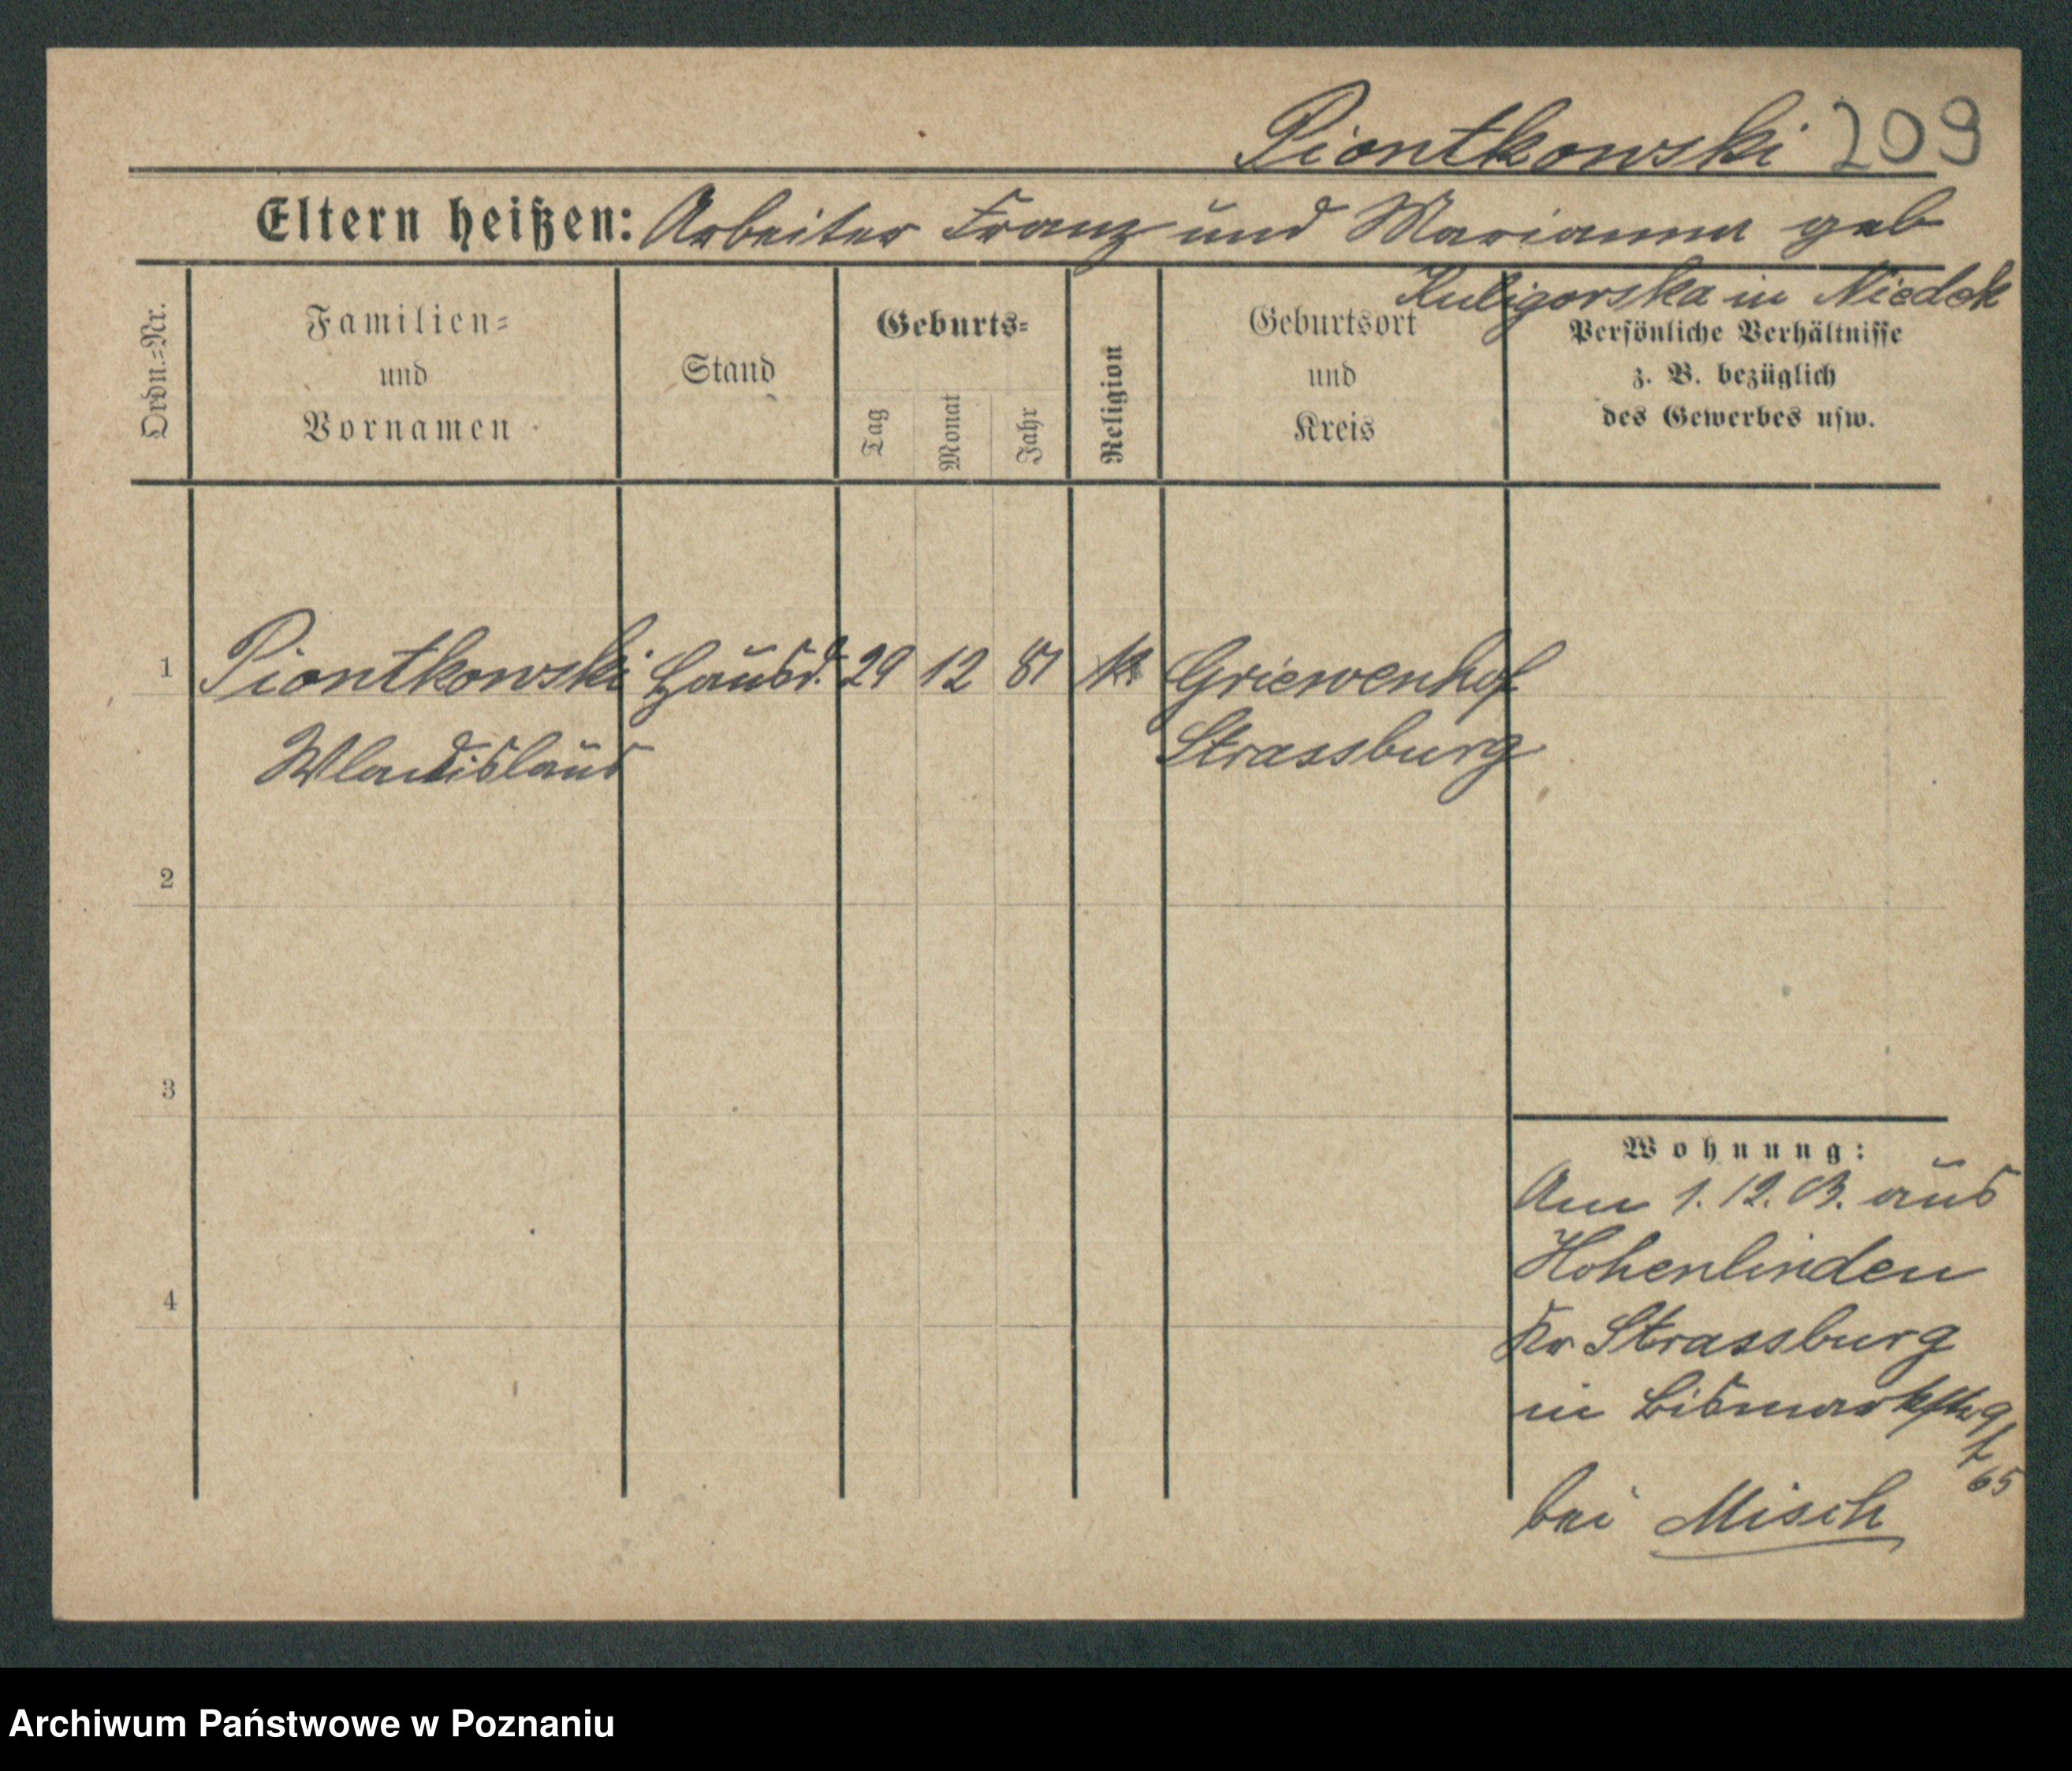 Piontkowski 209
Eltern heißen: Arbeiter Franz und Marianna geb
Kuligorska in Niedek
Ordn.=Nr.
Familien=
und
Vornamen
Stand
Geburts=
Tag
Monat
Jahr
Religion
Geburtsort
und
Kreis
Persönliche Verhältnisse
z. B. bezüglich
des Gewerbes usw.
1 Piontkowski Hausd. 29 12 81 k Griewenhof
Wladislaus Strassburg
2
3
4
Wohnung:
Am 1. 12. 03. aus
Hohenlinden
Kr Strassburg
in Bismarkstr 9
65
bei Misch
Archiwum Państwowe w Poznaniu